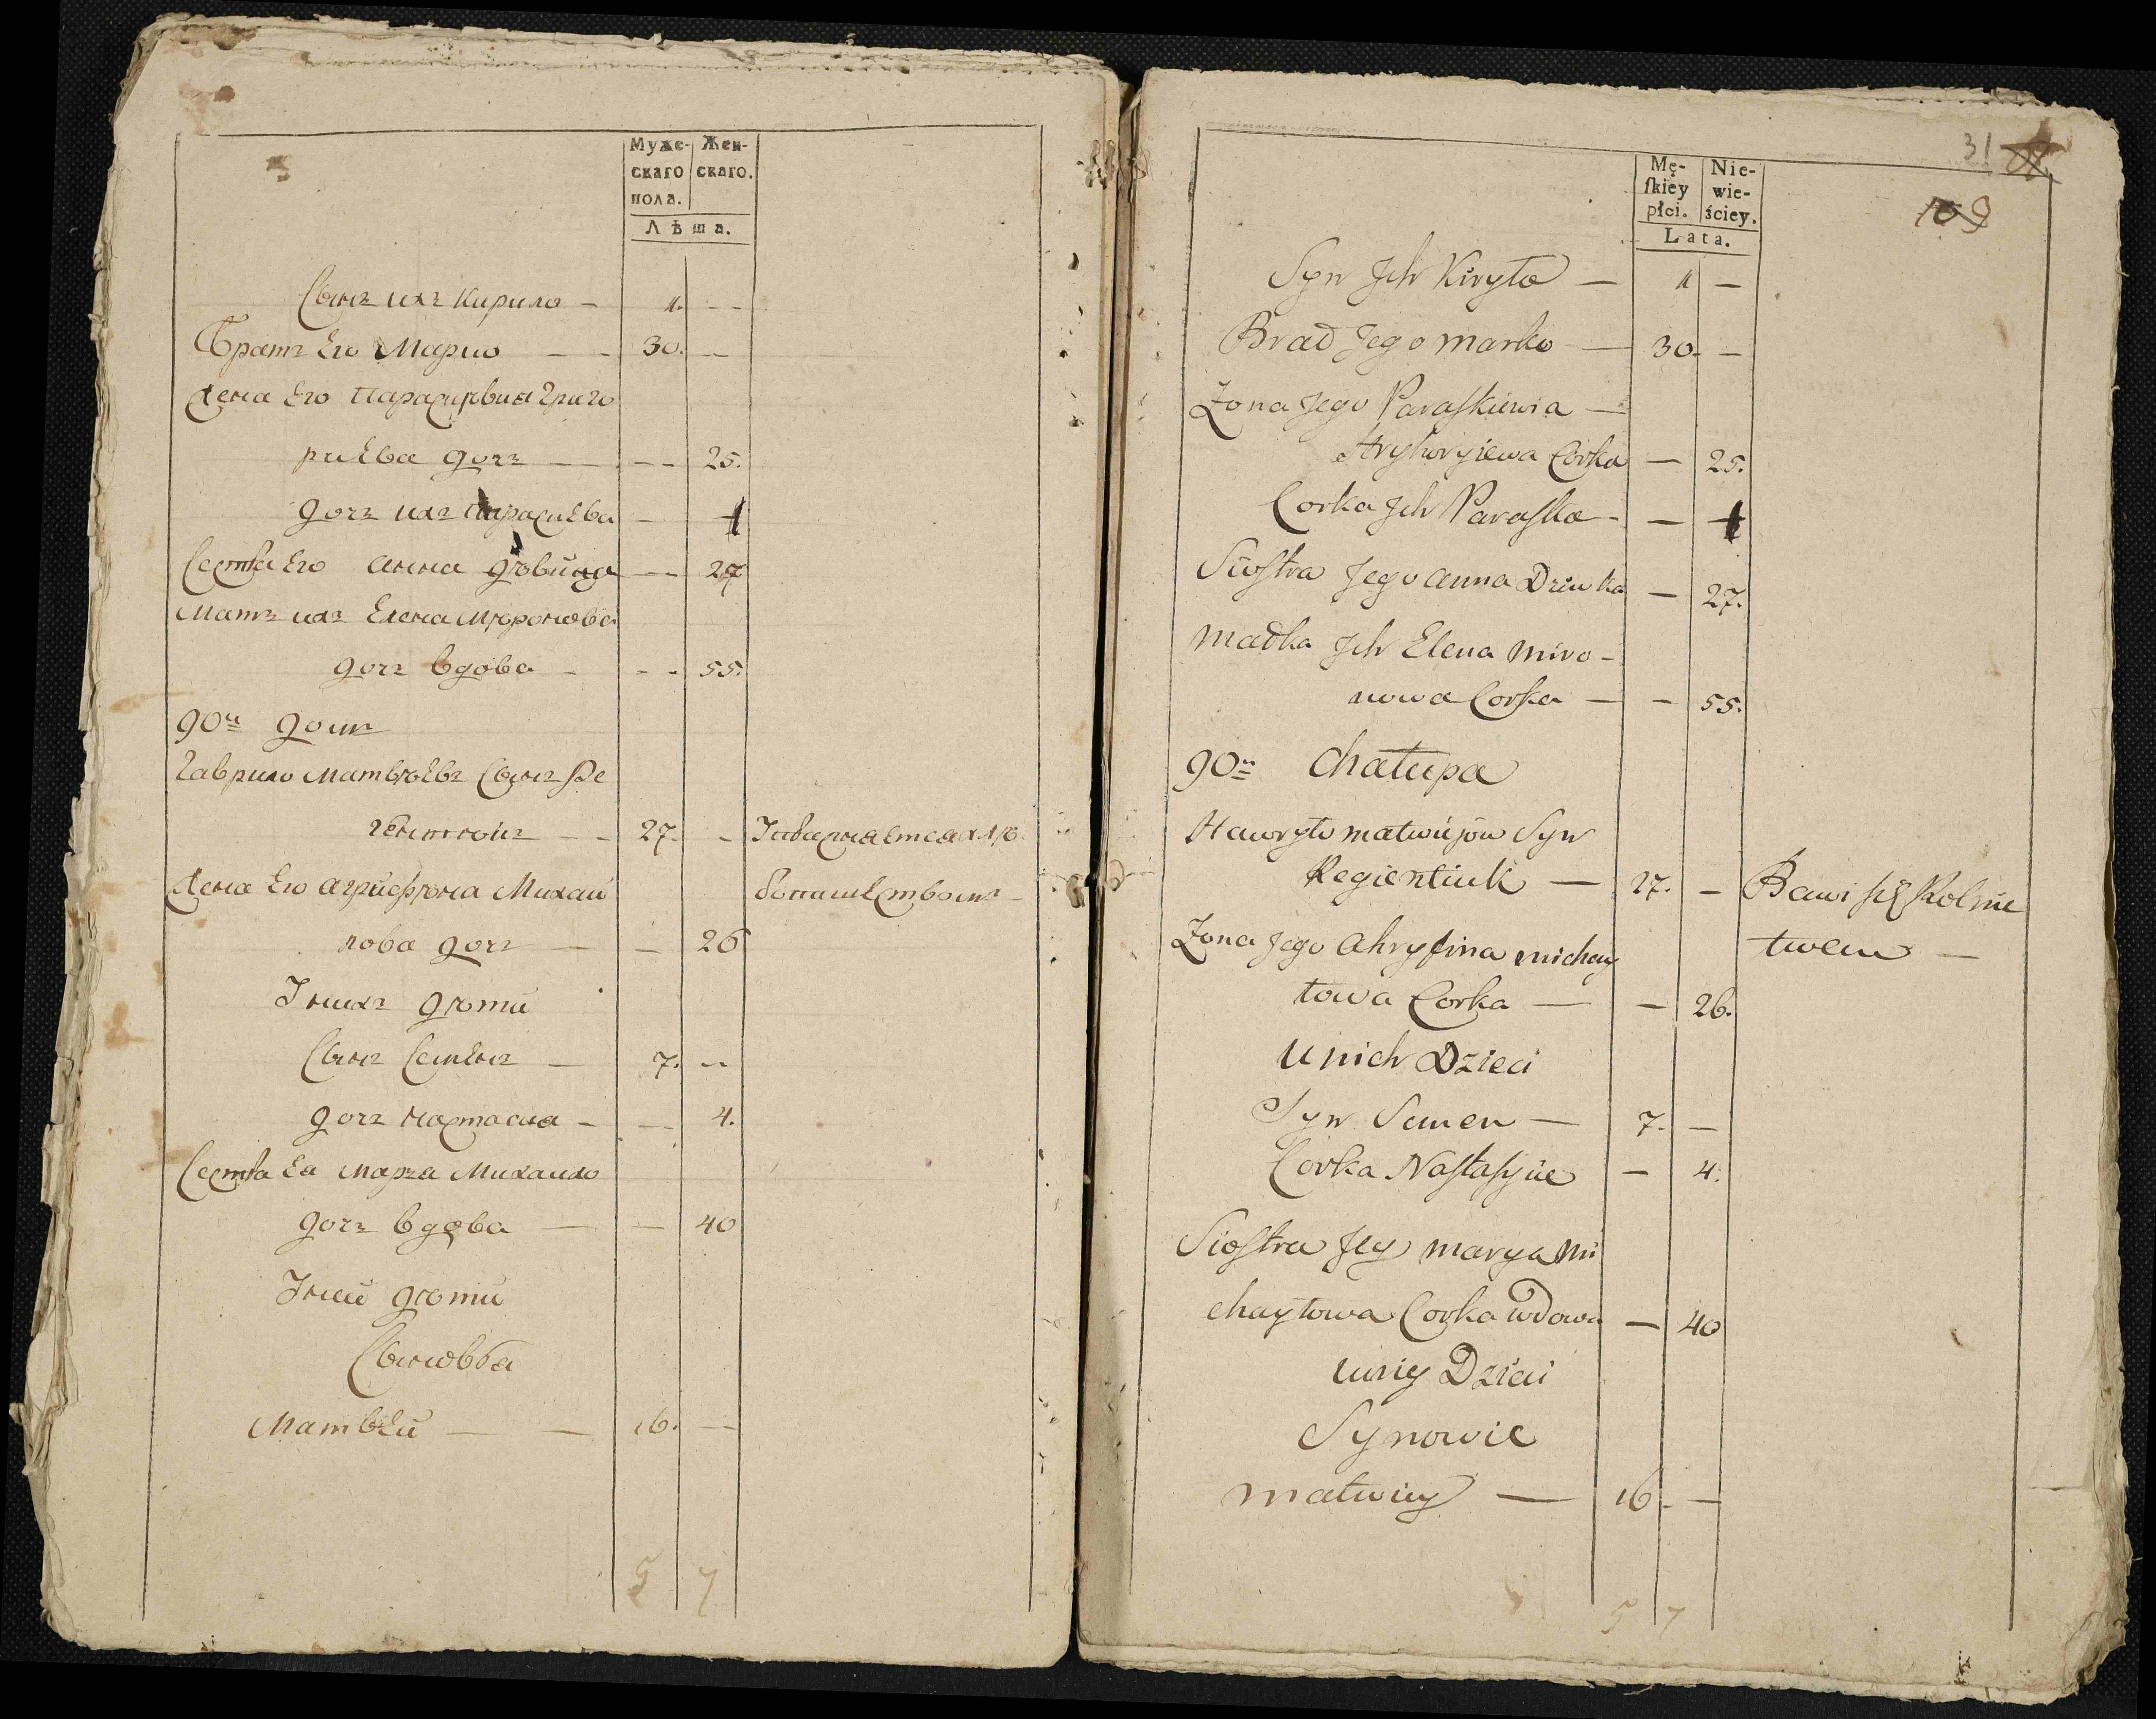 Муже- Жен-
скаго скаго.
пола.
Лѣта.
Сынъ ихъ Кирило - 1. --
Братъ Его Марко -- 30. --
Жена Его Параскѣвия Григо
риева дочь -- -- 25.
дочь ихъ Параскева - 1
Сестра Его Анна дѣвица -- 27
Мать ихъ Елена Мѵронова
дочь вдова - -- 55.
90й домъ
Гаврило Матвѣевъ Сынъ Ре
гентюкъ -- 27. - Занимается хлѣ
Жена Его Агрифѣна Михай бопашествомъ -
лова дочь - - 26
У нихъ дѣти
Сынъ Семенъ - 7. --
дочь Настасия - -- 4.
Сестра Ея Маръя Михайло
дочь вдова - - 40
У ней дѣти
Сыновья
Матвѣй - - 16. --
5 7
31
109
Mę- Nie-
ſkiey wie-
płci. ściey.
Lata.
Syn Jch Kiryło - 1 -
Brad Jego Marko - 30. -
Zona Jego Paraſkiewia -
Hryhoryiewa Corka - 25.
Corka Jch Paraſka - - 1
Siostra Jego Anna Dziwka - 27.
Madka Jch Elena Miro-
nowa Corka - - 55.
90a Chałupa
Hawryło Matwiiow Syn
Regientiuk - 27. - Bawi się Rolnic
Zona Jego Ahryfina Michay twem -
łowa Corka - - 26.
U nich Dzieci
Syn Semen - 7. -
Corka Nastasyia - 4.
Siostra Jey Marya Mi
chayłowa Corka Wdowa - 40
U niey Dzieci
Synowie
Matwiey - 16. -
5 7